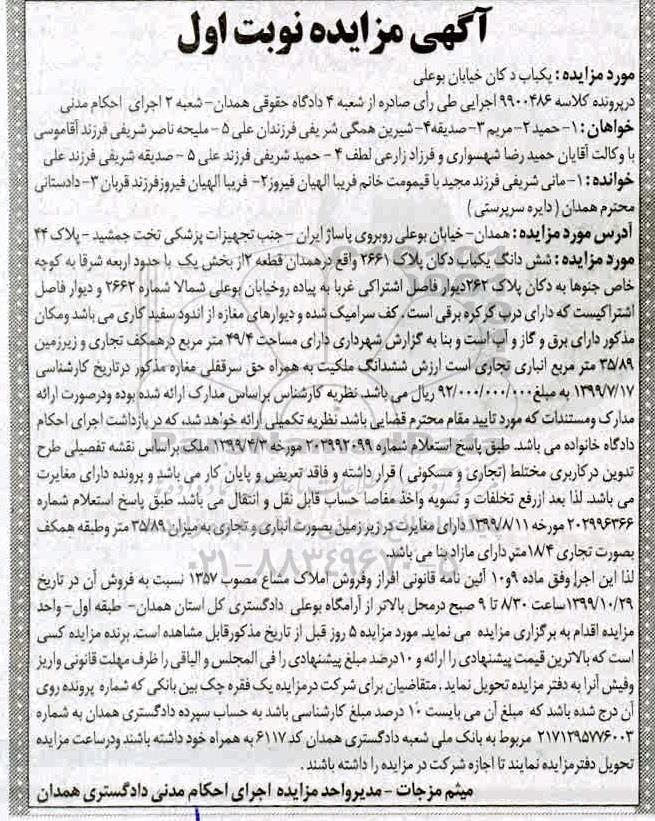 آگهی مزایده نوبت اول
مورد مزایده : یکباب دکان خیابان بوعلی
درپرونده کلاسه ۹۹۰۰۴۸۶ اجرایی طی رأی صادره از شعبه ۴ دادگاه حقوقی همدان- شعبه ۲ اجرای احکام مدنی
خواهان : ۱- حمید ۲- مریم ۳- صدیقه ۴- شیرین همگی شریفی فرزندان علی ۵ - ملیحه ناصر شریفی فرزند آقاموسی
با وکالت آقایان حمید رضا شهسواری و فرزاد زارعی لطف ۴ - حمید شریفی فرزند علی ۵ - صدیقه شریفی فرزند علی
خوانده : ۱- مانی شریفی فرزند مجید با قیمومت خانم فریبا الهیان فیروز ۲- فریبا الهیان فیروزفرزند قربان ۳- دادستانی
محترم همدان ( دایره سرپرستی )
آدرس مورد مزایده : همدان- خیابان بوعلی روبروی پاساژ ایران - جنب تجهیزات پزشکی تخت جمشید - پلاک ۴۴
مورد مزایده : شش دانگ یکباب دکان پلاک ۲۶۶۱ واقع درهمدان قطعه ۲ از بخش یک با حدود اربعه شرقا به کوچه
خاص جنوبا به دکان پلاک ۲۶۲ دیوار فاصل اشتراکی غربا به پیاده روخیابان بوعلی شمالا شماره ۲۶۶۲ و دیوار فاصل
اشتراکیست که دارای درب کرکره برقی است . کف سرامیک شده و دیوارهای مغازه از اندود سفید کاری می باشد ومکان
مذکور دارای برق و گاز و آب است و بنا به گزارش شهرداری دارای مساحت ۴۹/۴ متر مربع درهمکف تجاری و زیرزمین
۳۵/۸۹ متر مربع انباری تجاری است ارزش ششدانگ ملکیت به همراه حق سرقفلی مغازه مذکور درتاریخ کارشناسی
۱۳۹۹/۷/۱۷ به مبلغ ۹۲/۰۰۰/۰۰۰/۰۰۰ ریال می باشد. نظریه کارشناس براساس مدارک ارائه شده بوده ودرصورت ارائه
مدارک ومستندات که مورد تایید مقام محترم قضایی باشد. نظریه تکمیلی ارائه خواهد شد، که در بازداشت اجرای احکام
دادگاه خانواده می باشد. طبق پاسخ استعلام شماره ۲۰۳۹۹۲۰۹۹ مورخه ۱۳۹۹/۴/۳ ملک براساس نقشه تفصیلی طرح
تدوین درکاربری مختلط (تجاری و مسکونی ) قرار داشته و فاقد تعریض و پایان کار می باشد و پرونده دارای مغایرت
می باشد. لذا بعد ازرفع تخلفات و تسویه واخذ مفاصا حساب قابل نقل و انتقال می باشد طبق پاسخ استعلام شماره
۲۰۲۹۹۶۳۶۶ مورخه ۱۳۹۹/۸/۱۱ دارای مغایرت در زیر زمین بصورت انباری و تجاری به میزان ۳۵/۸۹ متر وطبقه همکف
بصورت تجاری ۱۸/۴متر دارای مازاد بنا می باشد.
لذا این اجرا وفق ماده ۹و۱۰ آئین نامه قانونی افراز وفروش املاک مشاع مصوب ۱۳۵۷ نسبت به فروش آن در تاریخ
۱۳۹۹/۱۰/۲۹ساعت ۸/۳۰ تا ۹ صبح درمحل بالاتر از آرامگاه بوعلی دادگستری کل استان همدان- طبقه اول- واحد
مزایده اقدام به برگزاری مزایده می نماید. مورد مزایده ۵ روز قبل از تاریخ مذکورقابل مشاهده است. برنده مزایده کسی
است که بالاترین قیمت پیشنهادی را ارائه و ۱۰درصد مبلغ پیشنهادی را فی المجلس و الباقی را ظرف مهلت قانونی واریز
وفیش آنرا به دفتر مزایده تحویل نماید . متقاضیان برای شرکت درمزایده یک فقره چک بین بانکی که شماره پرونده روی
آن درج شده باشد که مبلغ آن می بایست ۱۰ درصد مبلغ کارشناسی باشد به حساب سپرده دادگستری همدان به شماره
۲۱۷۱۲۹۵۷۷۶۰۰۳ مربوط به بانک ملی شعبه دادگستری همدان کد ۶۱۱۷ به همراه خود داشته باشند ودرساعت مزایده
تحویل دفترمزایده نمایند تا اجازه شرکت در مزایده را داشته باشند .
میثم مزجات - مدیرواحد مزایده اجرای احکام مدنی دادگستری همدان
۰۲۱-۸۸۳۴۹۶۷۰-۵